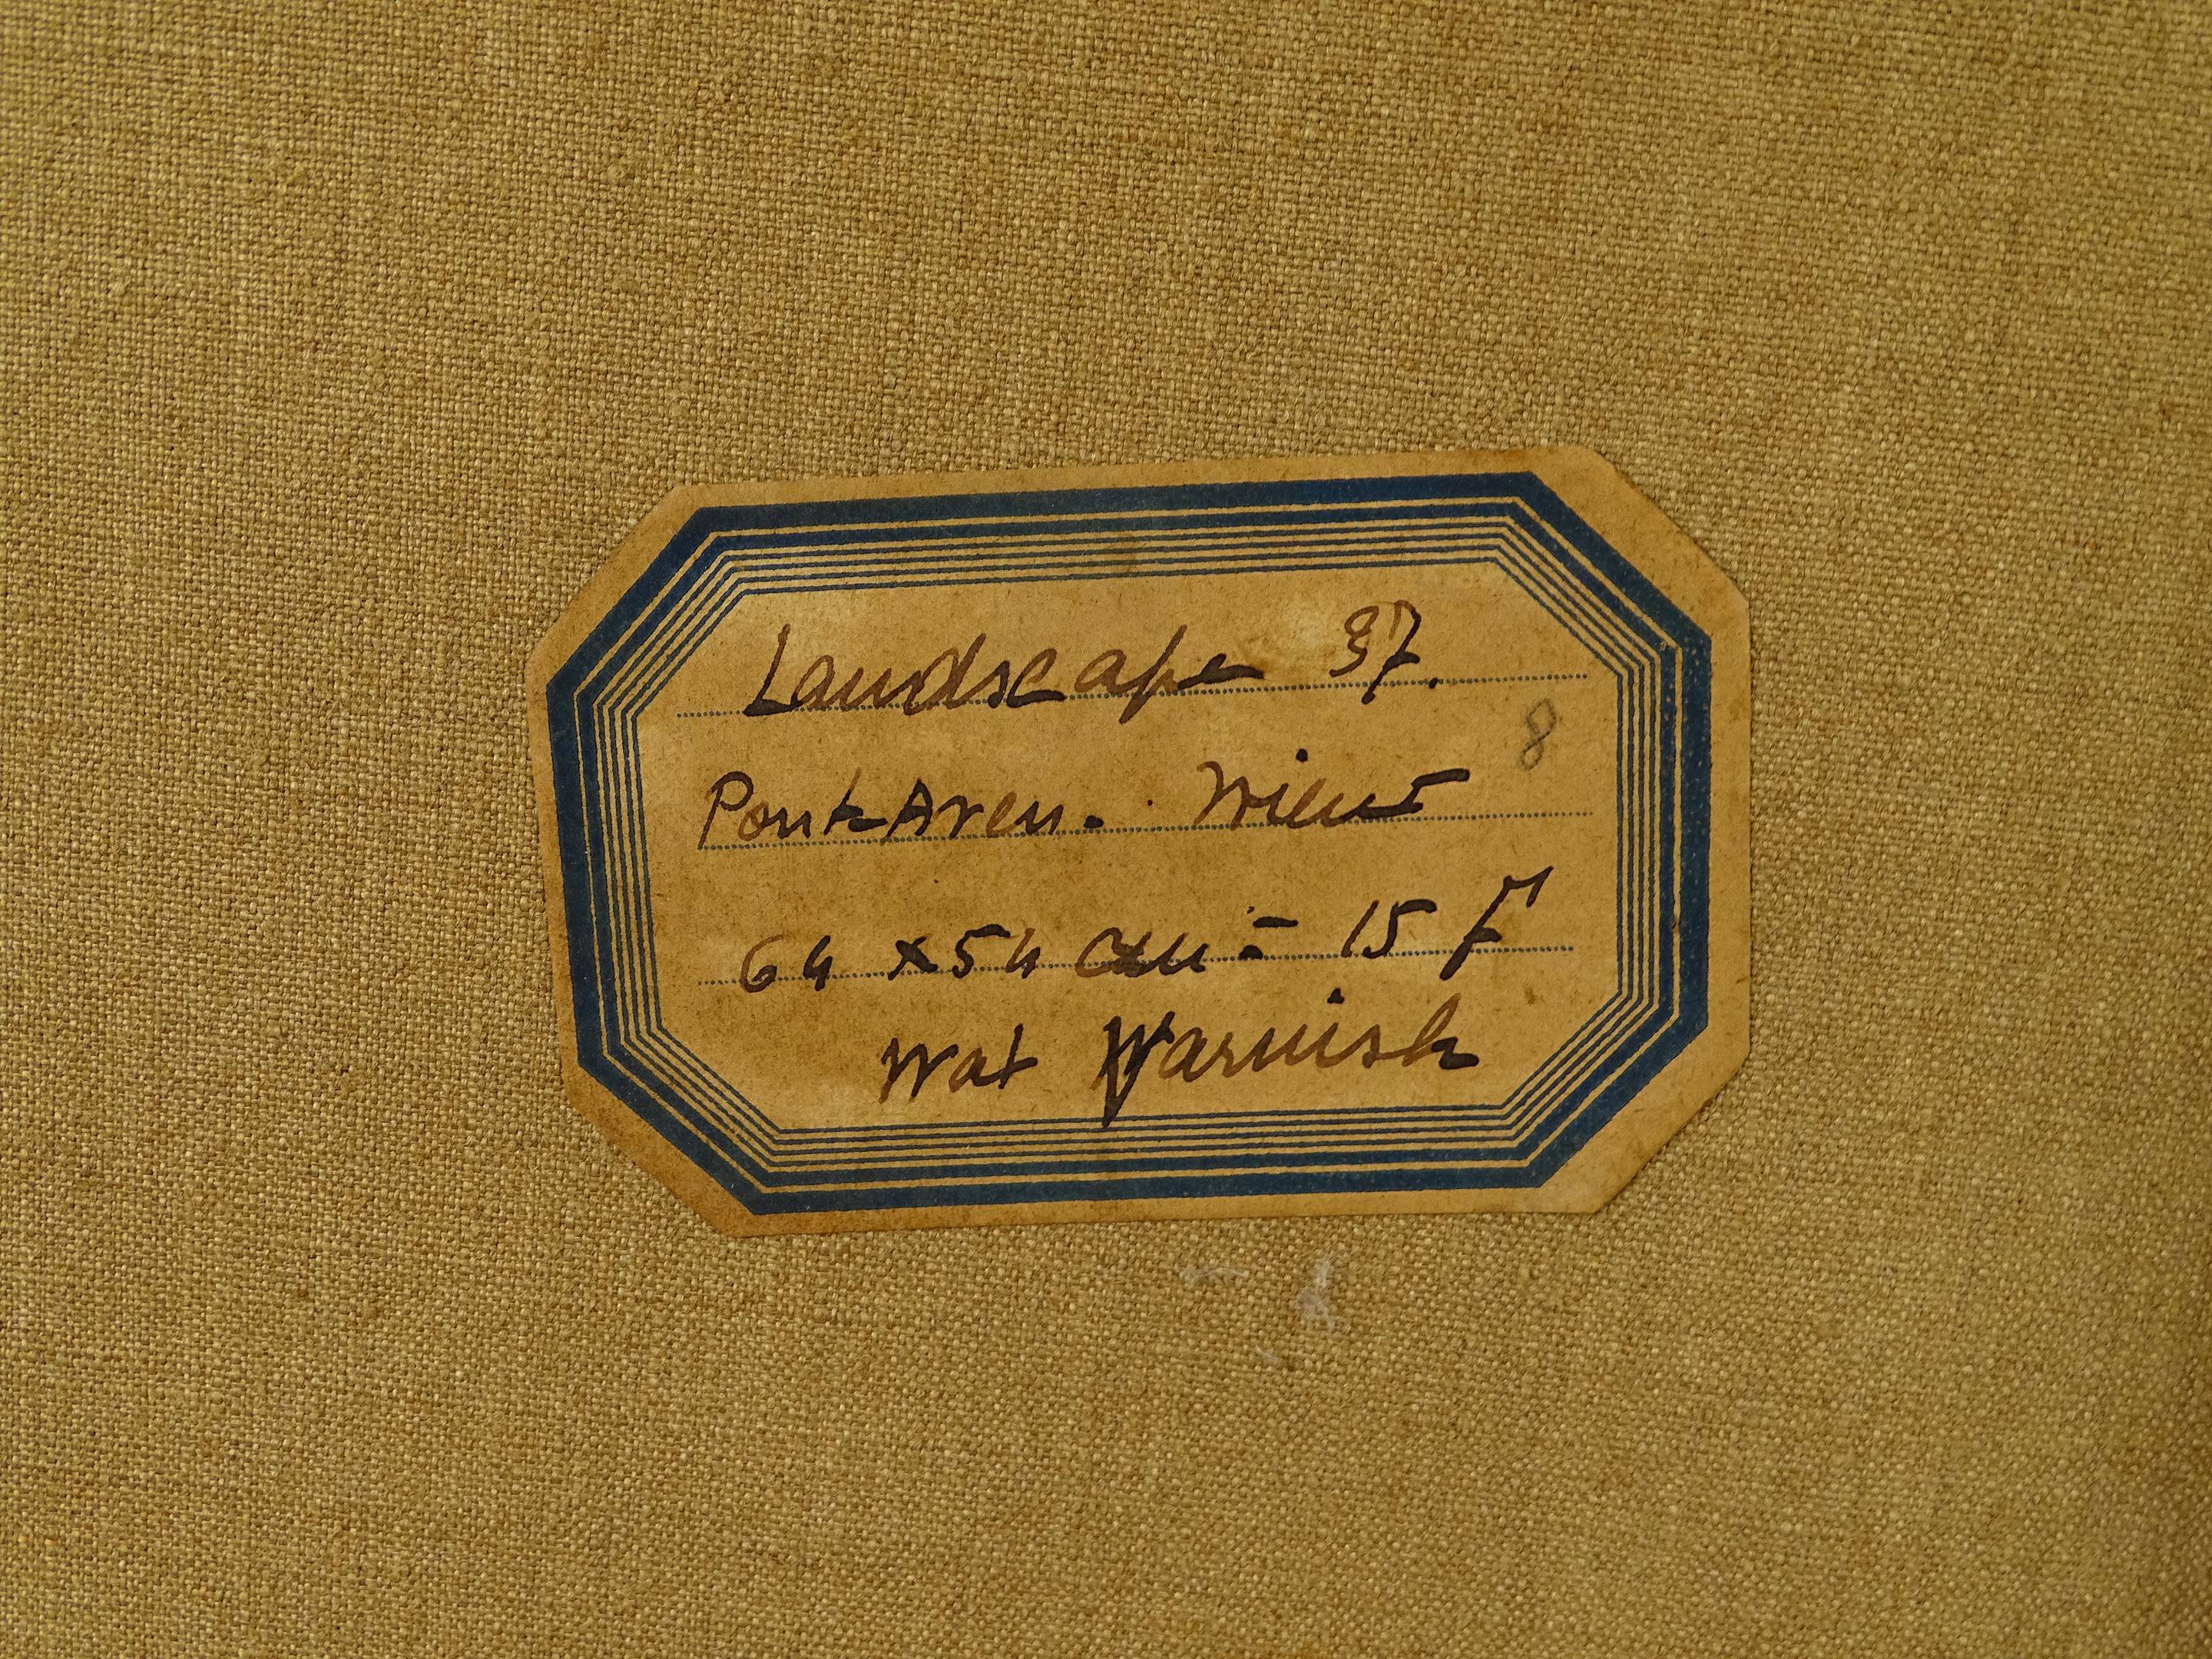 Landscape 37.
8
Pont-Aven. Nieus
64 x 54 cm = 15 F
Wat Warnish